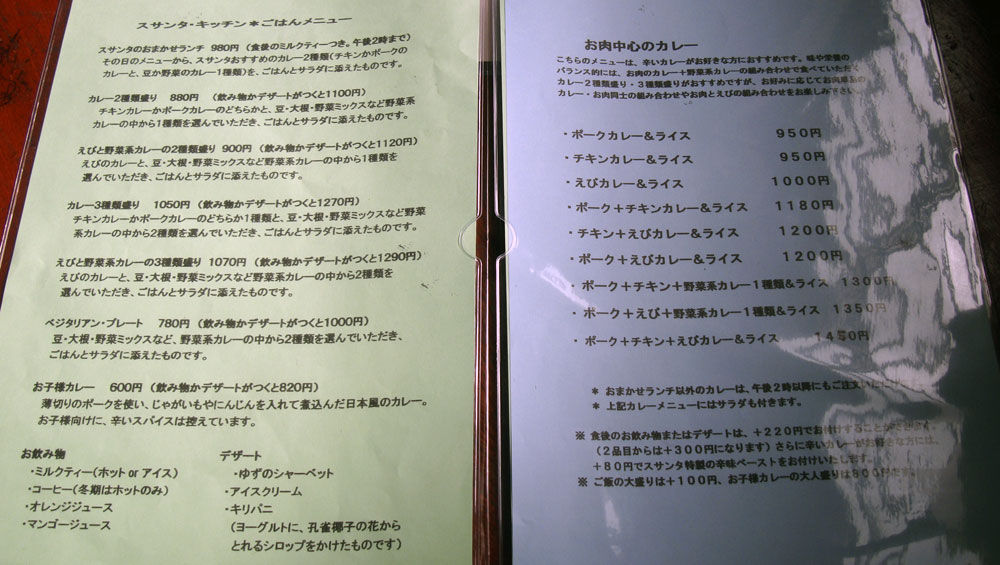 スサンタ・キッチン＊ごはんメニュー
スサンタのおまかせランチ 980円 (食後のミルクティーつき。午後2時まで)
その日のメニューから、スサンタおすすめのカレー2種類(チキンかポークの
カレーと、豆か野菜のカレー1種類)を、ごはんとサラダに添えたものです。
カレー2種類盛り 880円 (飲み物かデザートがつくと1100円)
チキンカレーかポークカレーのどちらかと、豆・大根・野菜ミックスなど野菜系
カレーの中から1種類を選んでいただき、ごはんとサラダに添えたものです。
えびと野菜系カレーの2種類盛り 900円 (飲み物かデザートがつくと1120円)
えびのカレーと、豆・大根・野菜ミックスなど野菜系カレーの中から1種類を
選んでいただき、ごはんとサラダに添えたものです。
カレー3種類盛り 1050円 (飲み物かデザートがつくと1270円)
チキンカレーかポークカレーのどちらか1種類と、豆・大根・野菜ミックスなど野菜
系カレーの中から2種類を選んでいただき、ごはんとサラダに添えたものです。
えびと野菜系カレーの3種類盛り 1070円 (飲み物かデザートがつくと1290円)
えびのカレーと、豆・大根・野菜ミックスなど野菜系カレーの中から2種類を
選んでいただき、ごはんとサラダに添えたものです。
ベジタリアン・プレート 780円 (飲み物かデザートがつくと1000円)
豆・大根・野菜ミックスなど、野菜系カレーの中から2種類を選んでいただき、
ごはんとサラダに添えたものです。
お子様カレー 600円 (飲み物かデザートがつくと820円)
薄切りのポークを使い、じゃがいもやにんじんを入れて煮込んだ日本風のカレー。
お子様向けに、辛いスパイスは控えています。
お飲み物
・ミルクティー(ホット or アイス)
・コーヒー(冬期はホットのみ)
・オレンジジュース
・マンゴージュース
デザート
・ゆずのシャーベット
・アイスクリーム
・キリパニ
(ヨーグルトに、孔雀椰子の花から
とれるシロップをかけたものです)
お肉中心のカレー
こちらのメニューは、辛いカレーがお好きな方におすすめです。味や栄養の
バランス的には、お肉のカレー＋野菜系カレーの組み合わせで食べていただく
カレー2種類盛り・3種類盛りがおすすめですが、お好みに応じてお肉単品の
カレー・お肉同士の組み合わせやお肉とえびの組み合わせをお楽しみ下さい。
・ポークカレー＆ライス 950円
・チキンカレー＆ライス 950円
・えびカレー＆ライス 1000円
・ポーク＋チキンカレー＆ライス 1180円
・チキン＋えびカレー＆ライス 1200円
・ポーク＋えびカレー＆ライス 1200円
・ポーク＋チキン＋野菜系カレー1種類＆ライス 1300円
・ポーク＋えび＋野菜系カレー1種類＆ライス 1350円
・ポーク＋チキン＋えびカレー＆ライス 1450円
＊ おまかせランチ以外のカレーは、午後2時以降にもご注文いただけ
＊ 上記カレーメニューにはサラダも付きます。
※ 食後のお飲み物またはデザートは、＋220円でお付けすることができます。
(2品目からは＋300円になります) さらに辛いカレーがお好きな方には、
＋80円でスサンタ特製の辛味ペーストをお付けいたします。
※ ご飯の大盛りは＋100円、お子様カレーの大人盛りは800円です。